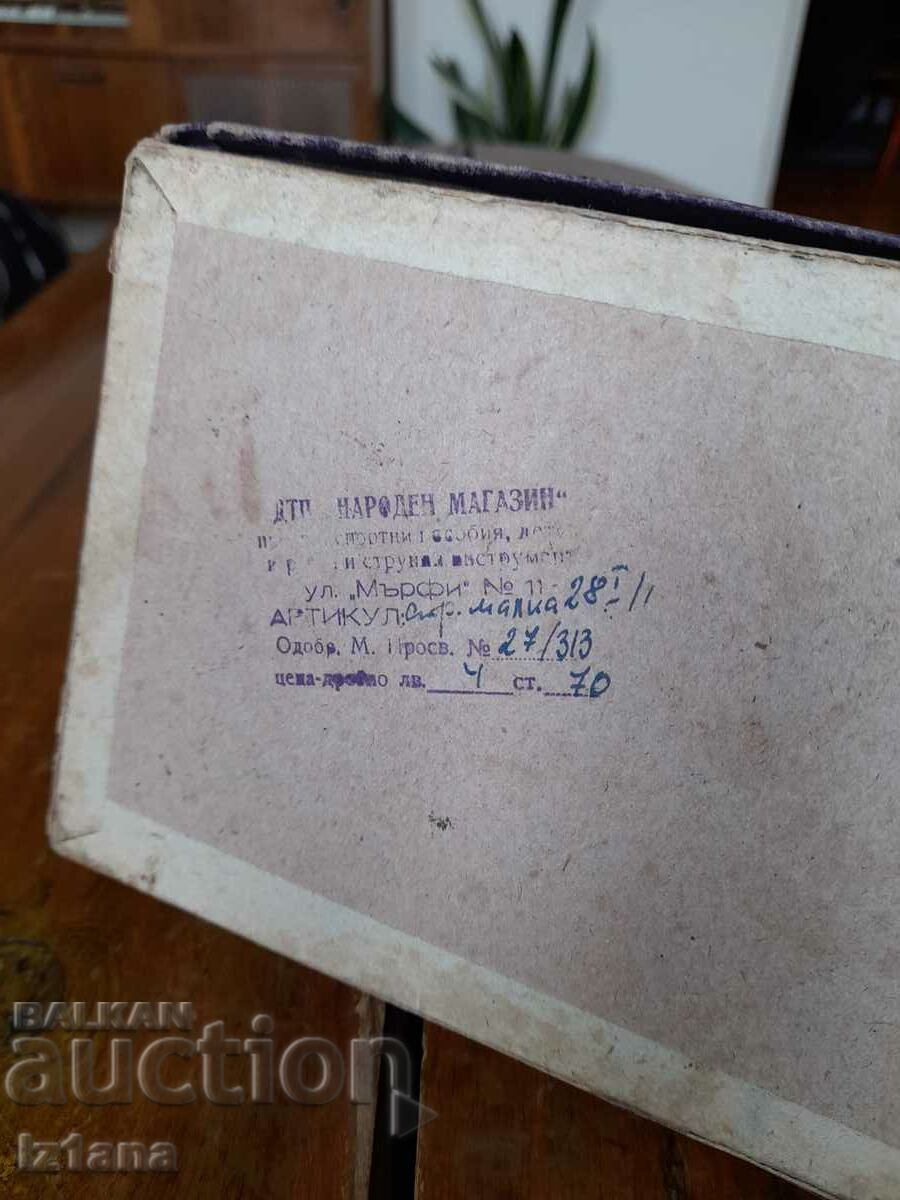 ДТП „НАРОДЕН МАГАЗИН“
спортни пособия,
и струнни инструмент
ул. „Мърфи“ № 11
АРТИКУЛ: стр. малка 28 I/
Одобр. М. Просв. № 27/313
цена-дребно лв. 4 ст. 70
BALKAN
auction
Iz1ana